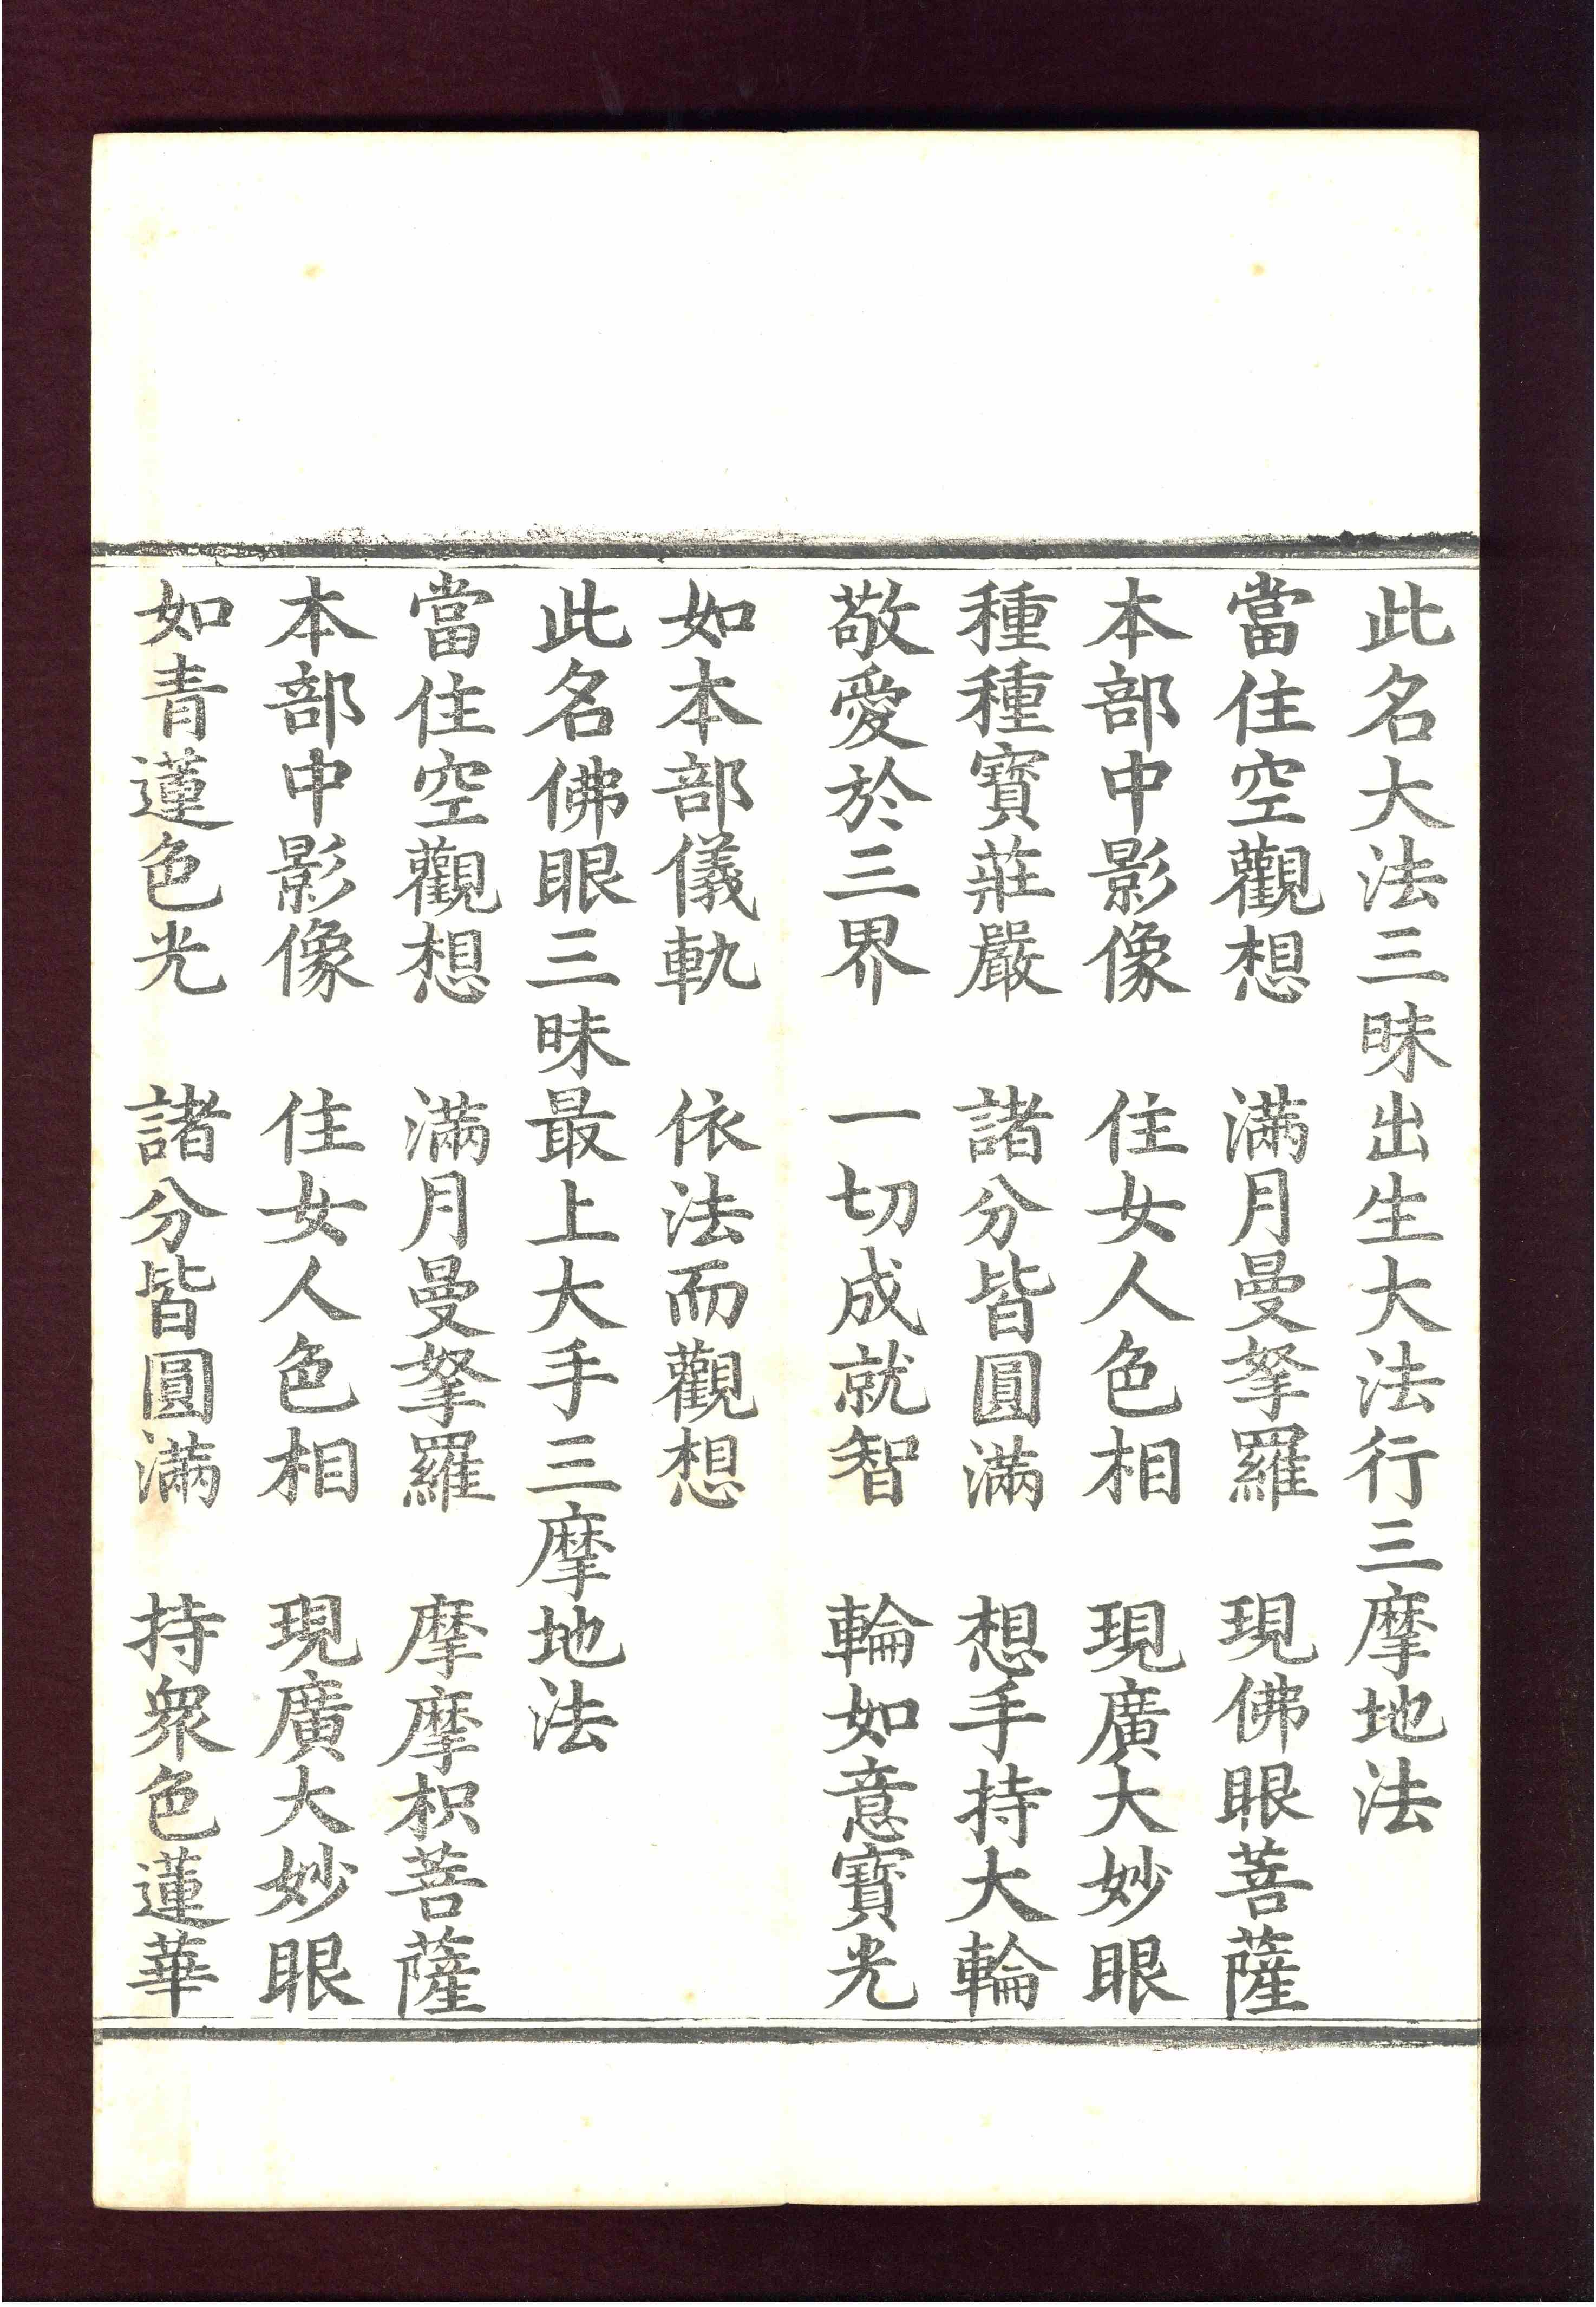 此名大法三昧出生大法行三摩地法
當住空觀想　滿月曼拏羅　現佛眼菩薩
本部中影像　住女人色相　現廣大妙眼
種種寶莊嚴　諸分皆圓滿　想手持大輪
敬愛於三界　一切成就智　輪如意寶光
如本部儀軌　依法而觀想
此名佛眼三昧最上大手三摩地法
當住空觀想　滿月曼拏羅　摩摩枳菩薩
本部中影像　住女人色相　現廣大妙眼
如青蓮色光　諸分皆圓滿　持衆色蓮華